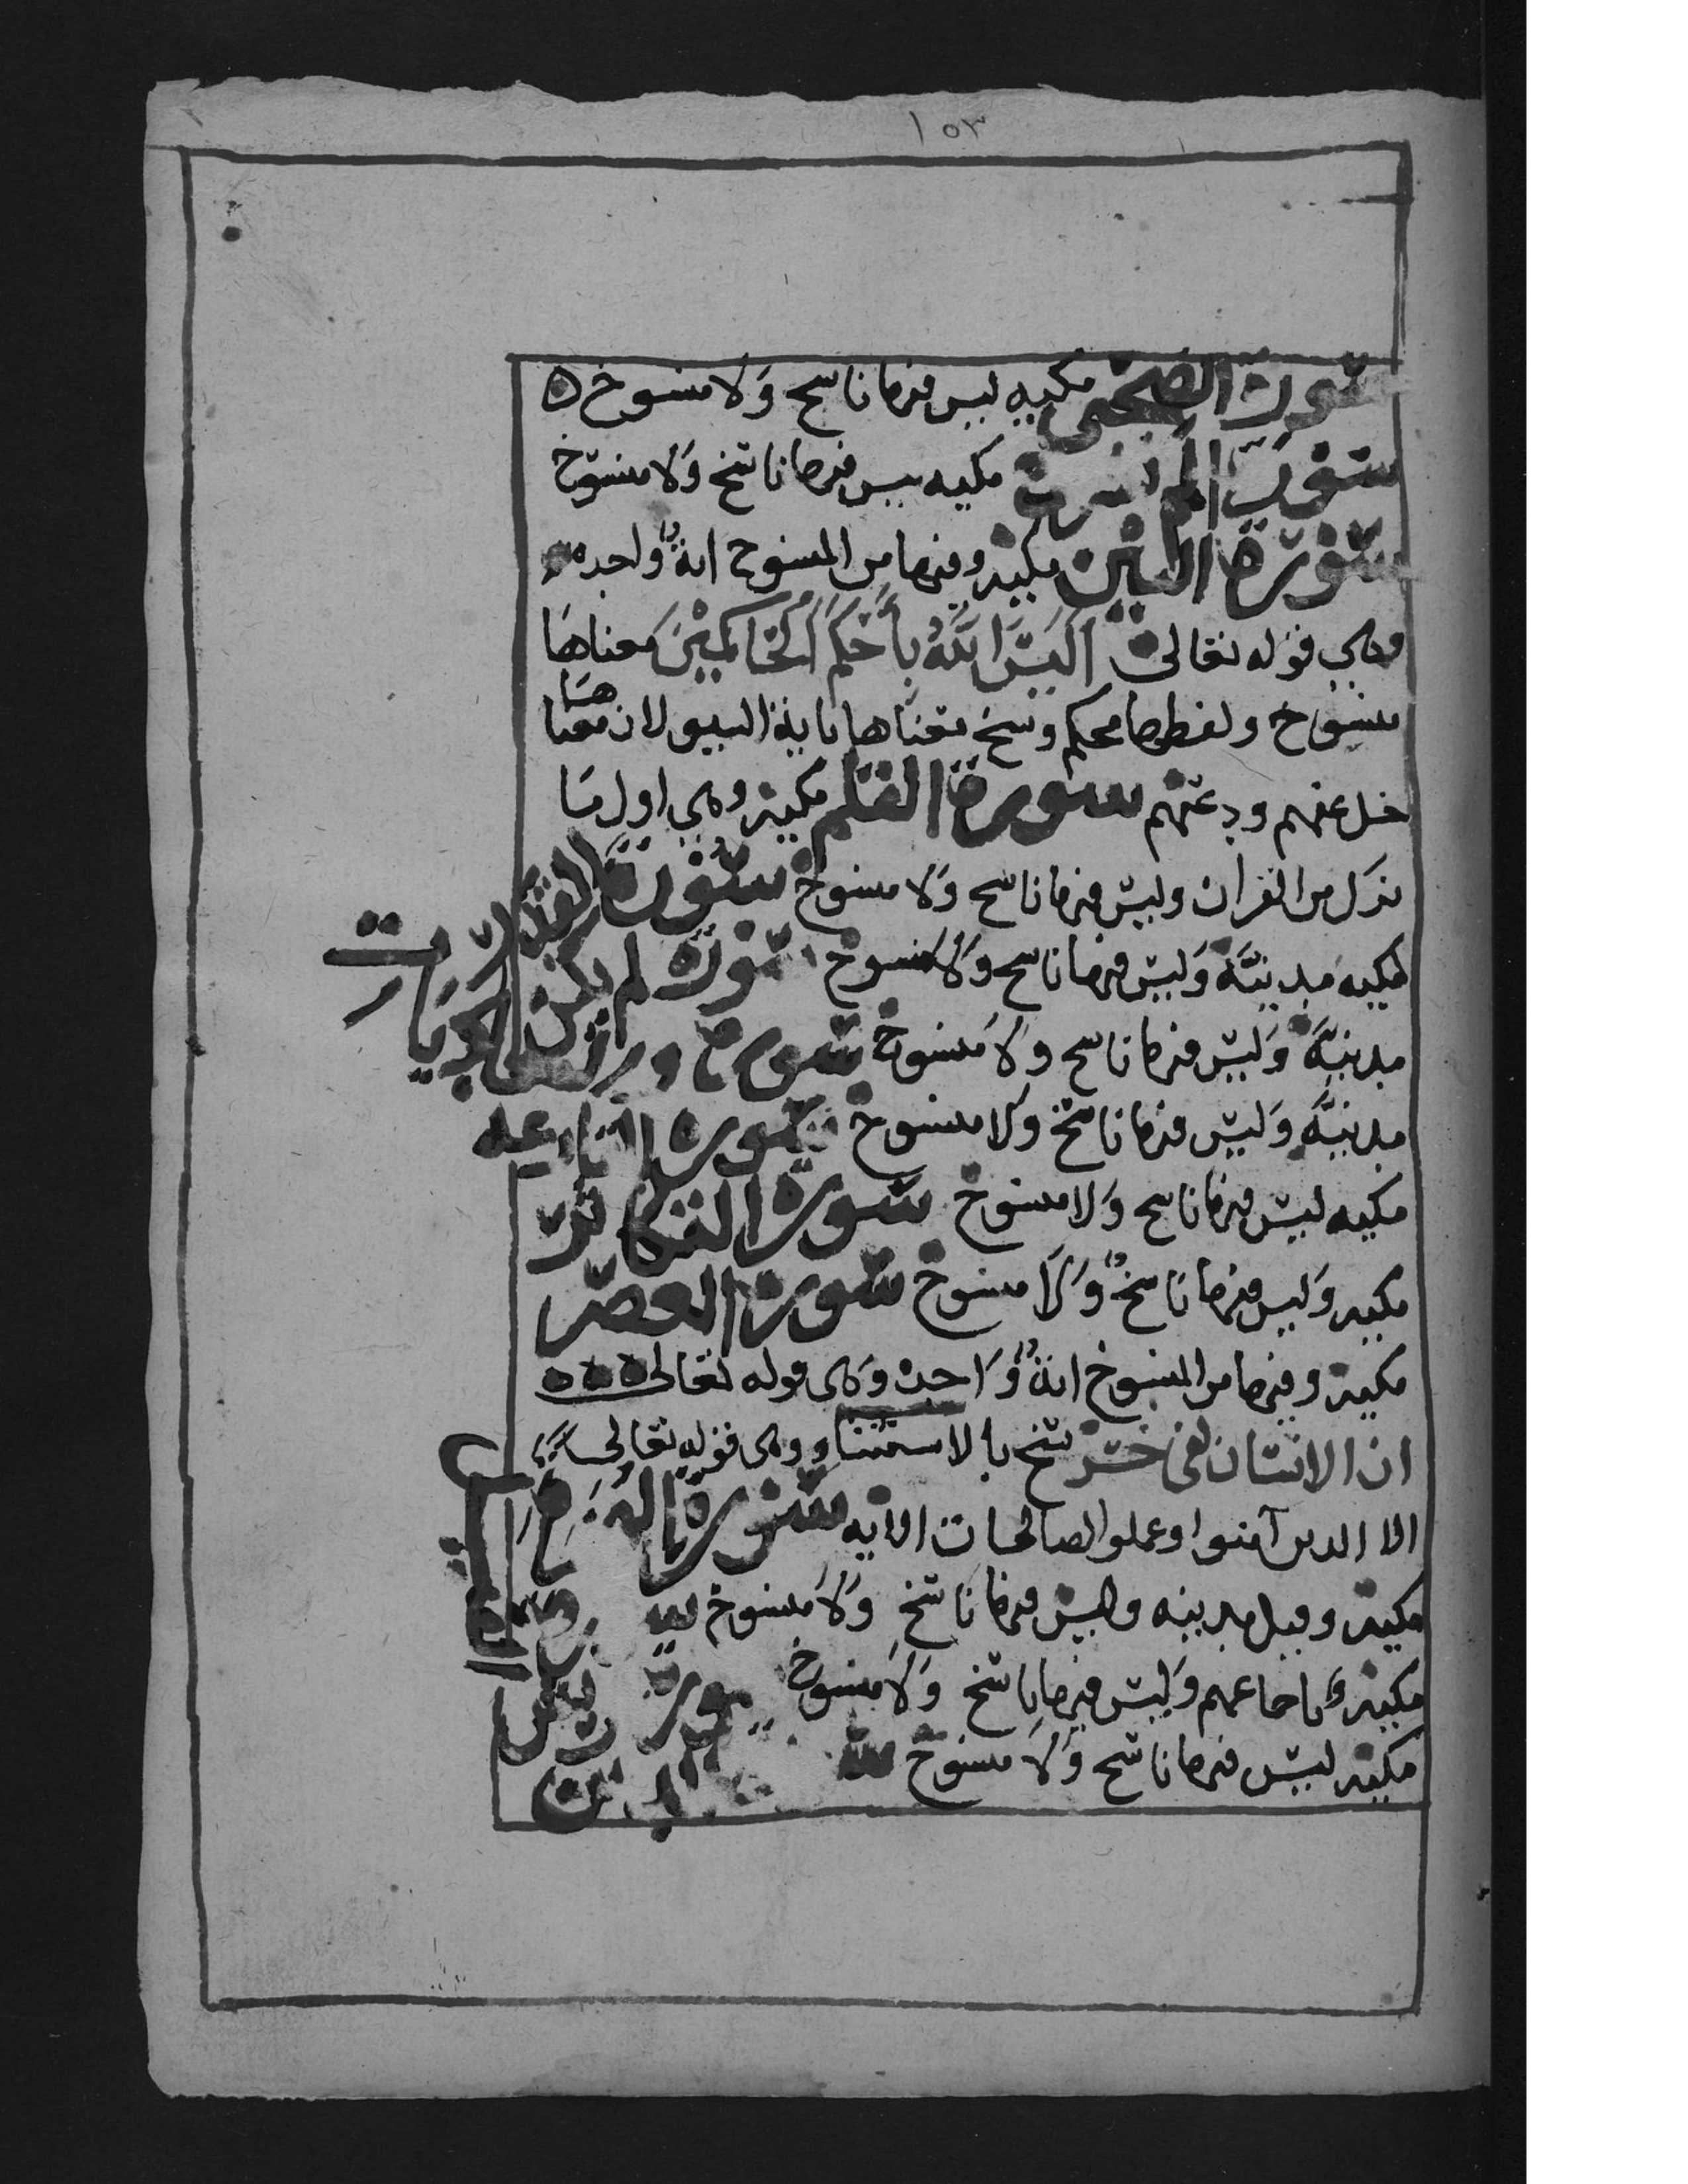 ١٥٣
سورة الضحى مكيه ليس فيها ناسخ ولا منسوخ ه
سورة الم نشرح مكيه ليس فيها ناسخ ولا منسوخ
سورة التين مكية وفيها من المنسوخ اية واحده
وهي قوله تعالى اَلَيْسَ اللَّهُ بِأَحْكَمِ الْحَاكِمِيْنَ معناها
منسوخ ولفظها محكم ونسخ معناها باية السيف لان معناها
خل عنهم ودعهم سورة القلم مكية وهي اول ما
نزل من القران وليس فيها ناسخ ولا منسوخ سورة القدر
مكيه مدينيَّة وليس فيها ناسخ ولا منسوخ سورة لم يكن
مدينيَّة وليس فيها ناسخ ولا منسوخ سورة والعاديات
مدينيَّة وليس فيها ناسخ ولا منسوخ سورة القارعه
مكيه ليس فيها ناسخ ولا منسوخ سورة التكاثر
مكيه وليس فيها ناسخٌ ولا منسوخ سورة العصر
مكية وفيها من المنسوخ ايةٌ واحدة وهى قوله تعالى ه ه ه
ان الانسان لفى خسر نسخ بالاستثنا وهى قوله تعالى
الا الدين آمنوا وعملوا الصالحات الايه سورة
مكية وقيل مدينيه وليس فيها ناسخ ولا منسوخ
مكية وليس فيها ناسخ ولا منسوخ سورة
مكية ليس فيها ناسخ ولا منسوخ